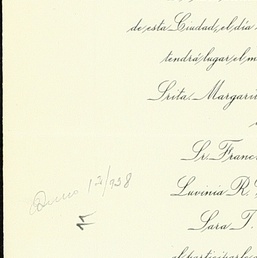 de esta Ciudad, el día
tendrá lugar el m
Srita. Margari
Sr. Franc
Luvinia R.
Sara T.
el participarlo a
12/938
11